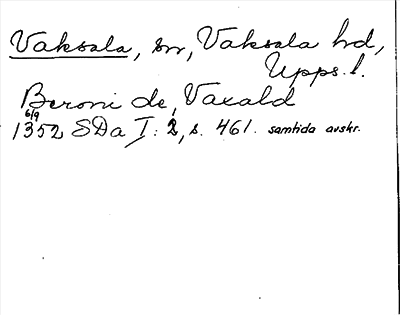 Vaksala, sn, Vaksala hd,
Upps. l.
Beroni de, Vaxald
6/9
1352 SDa I: 2, s. 461. samtida avskr.